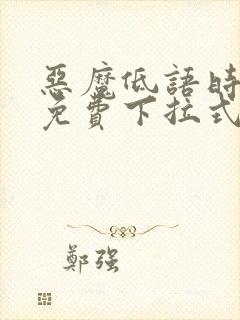 惡魔低語時
免費下拉式
鄭强